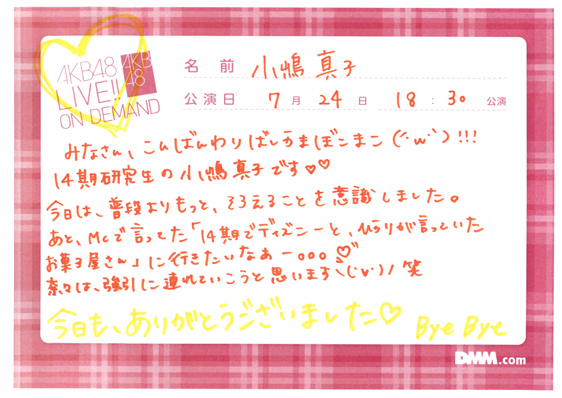 AKB48
LIVE!!
ON DEMAND
AKB
48
名前 小嶋真子
公演日 7月24日 18:30 公演
みなさん、こんばんわりばしかまぼこまこ(´・ω・`)!!!
14期研究生の小嶋真子です♡♡
今日は、普段よりもっと、そろえることを意識しました。
あと、MCで言ってた「14期でディズニーと、ひかりが言っていた
お菓子屋さん」に行きたいなぁー。。。♡
奈々は、強引に連れていこうと思います 笑
今日も、ありがとうございました♡ Bye Bye
DMM.com